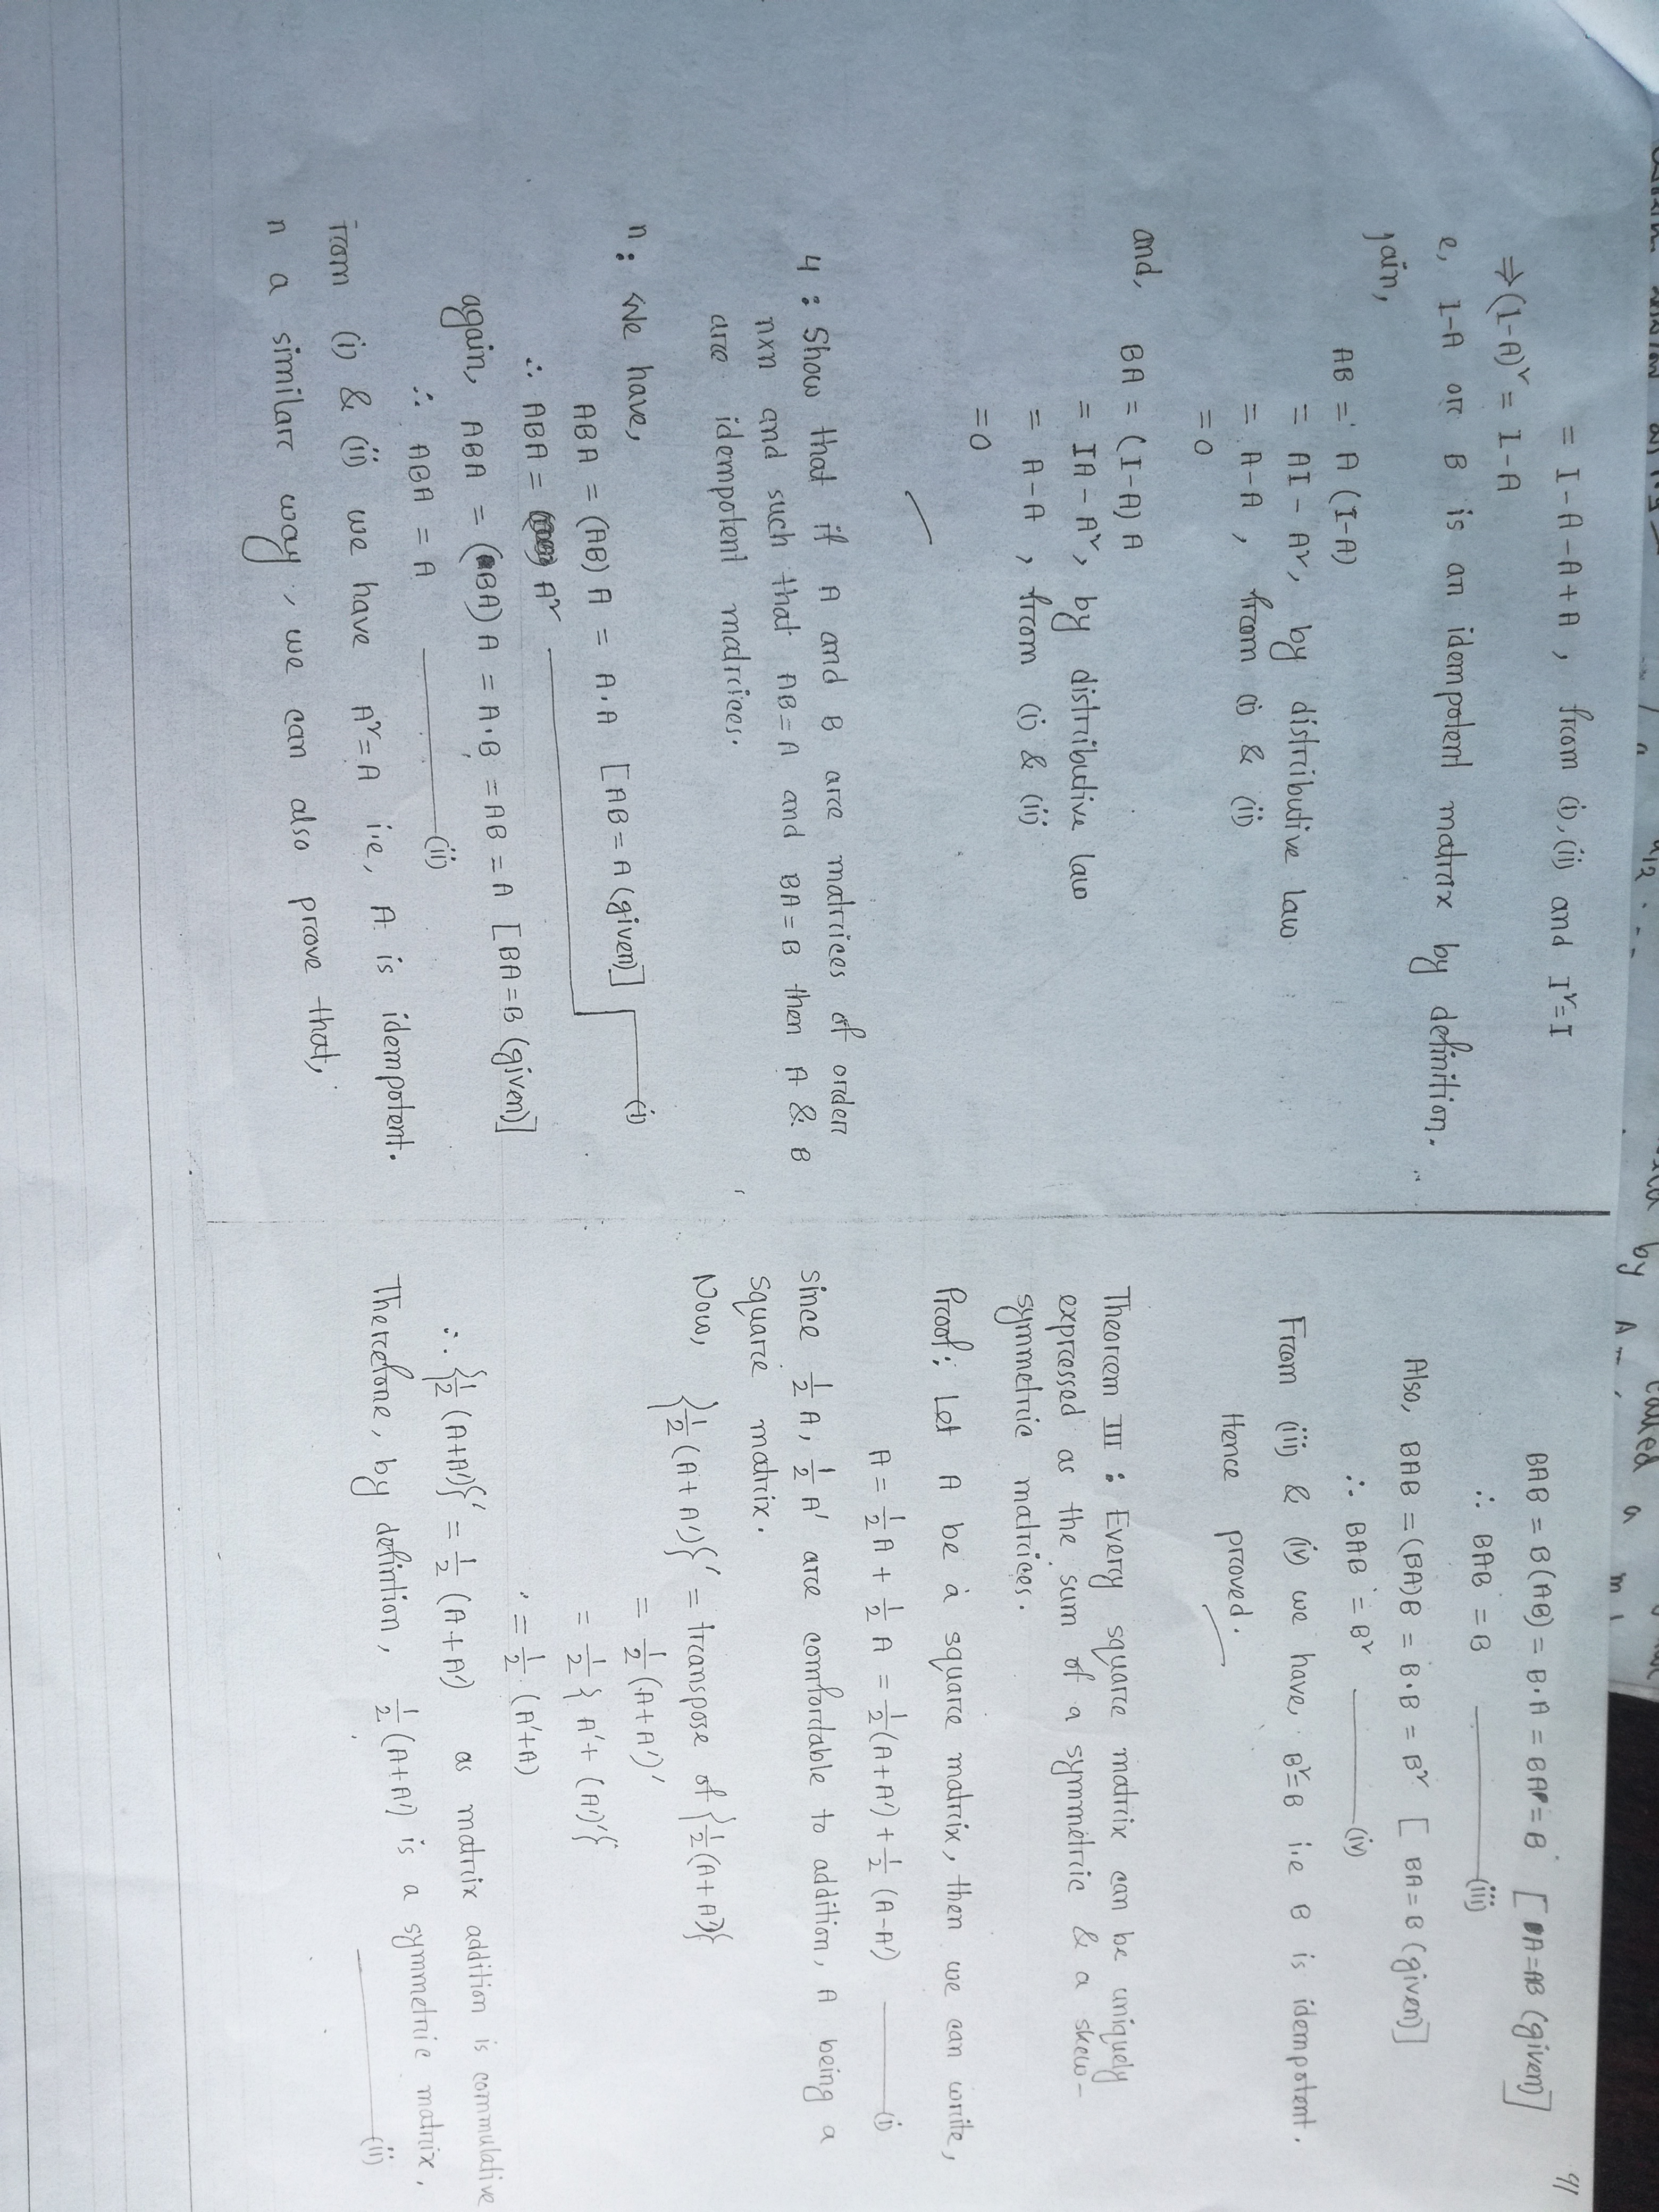 a12 ...
by
called a
A
= I-A-A+A , from (i),(ii) and I²=I
⇒(I-A)² = I-A
e, I-A or B is an idempotent matrix by definition.
gain,
AB = A (I-A)
= AI - A², by distributive law
= A-A , from (i) & (ii)
=0
and, BA = (I-A) A
= IA - A², by distributive law
= A-A , from (i) & (ii)
=0
4 : Show that if A and B are matrices of order
n×n and such that AB=A and BA=B then A & B
are idempotent matrices.
n: We have,
ABA = (AB) A = A.A [AB=A (given)] (i)
∴ ABA = A²
again, ABA = (BA) A = A.B = AB = A [BA=B (given)]
∴ ABA = A (ii)
from (i) & (ii) we have A²=A i.e, A is idempotent.
n a similar way, we can also prove that,
91
BAB = B(AB) = B.A = BA = B [A=AB (given)]
∴ BAB = B (iii)
Also, BAB = (BA)B = B.B = B² [BA=B (given)]
∴ BAB = B² (iv)
From (iii) & (iv) we have, B²=B i.e B is idempotent.
Hence proved.
Theorem III : Every square matrix can be uniquely
expressed as the sum of a symmetric & a skew-
symmetric matrices.
Proof: Let A be a square matrix, then we can write,
A = 1/2 A + 1/2 A = 1/2 (A+A') + 1/2 (A-A') (i)
since 1/2 A, 1/2 A' are comfordable to addition, A being a
square matrix.
Now, {1/2 (A+A')}' = transpose of {1/2 (A+A')}
= 1/2 (A+A')'
= 1/2 { A' + (A')'}
= 1/2 (A'+A)
∴ {1/2 (A+A')}' = 1/2 (A+A') as matrix addition is commulative
Therefore, by defintion, 1/2 (A+A') is a symmetric matrix,
(ii)